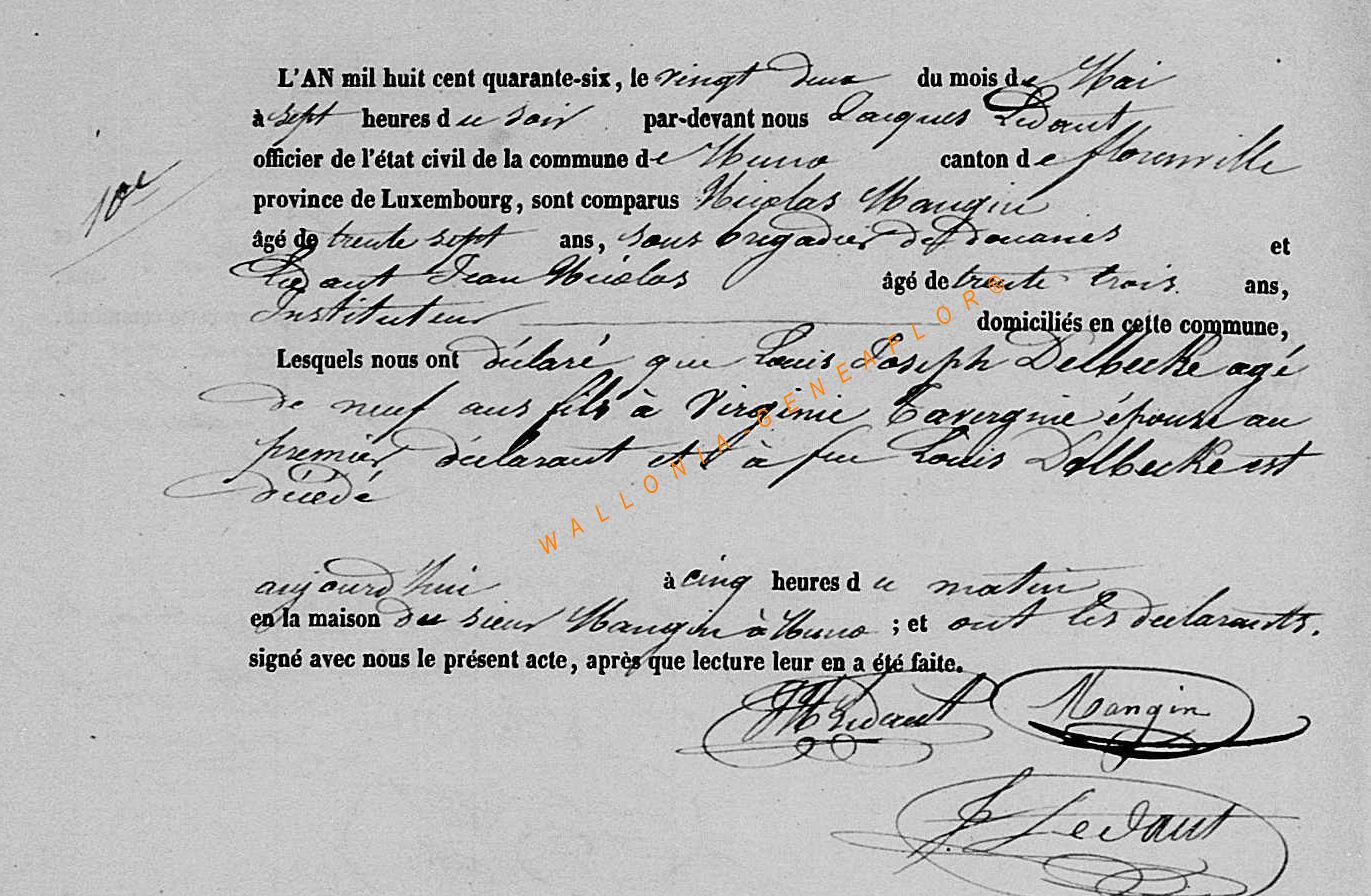 L'AN mil huit cent quarante-six, le vingt deux du mois de Mai
à sept heures du soir par-devant nous Jacques Ledant
officier de l'état civil de la commune de Muno canton de florenville
province de Luxembourg, sont comparus Nicolas Mangin
10e
âgé de trente sept ans, sous brigadier des douanes et
Ledant Jean Nicolas âgé de trente trois ans,
Instituteur domiciliés en cette commune,
Lesquels nous ont déclaré que Louis Joseph Delbecke agé
de neuf ans fils à Virginie Tavergnie épouse au
premier déclarant et à feu Louis Delbecke est
décédé
aujourd'hui à cinq heures du matin
en la maison du sieur Mangin à Muno ; et ont les déclarants.
signé avec nous le présent acte, après que lecture leur en a été faite.
JNLedant Mangin
J. Ledant
WALLONIA-GENEAFLOR©